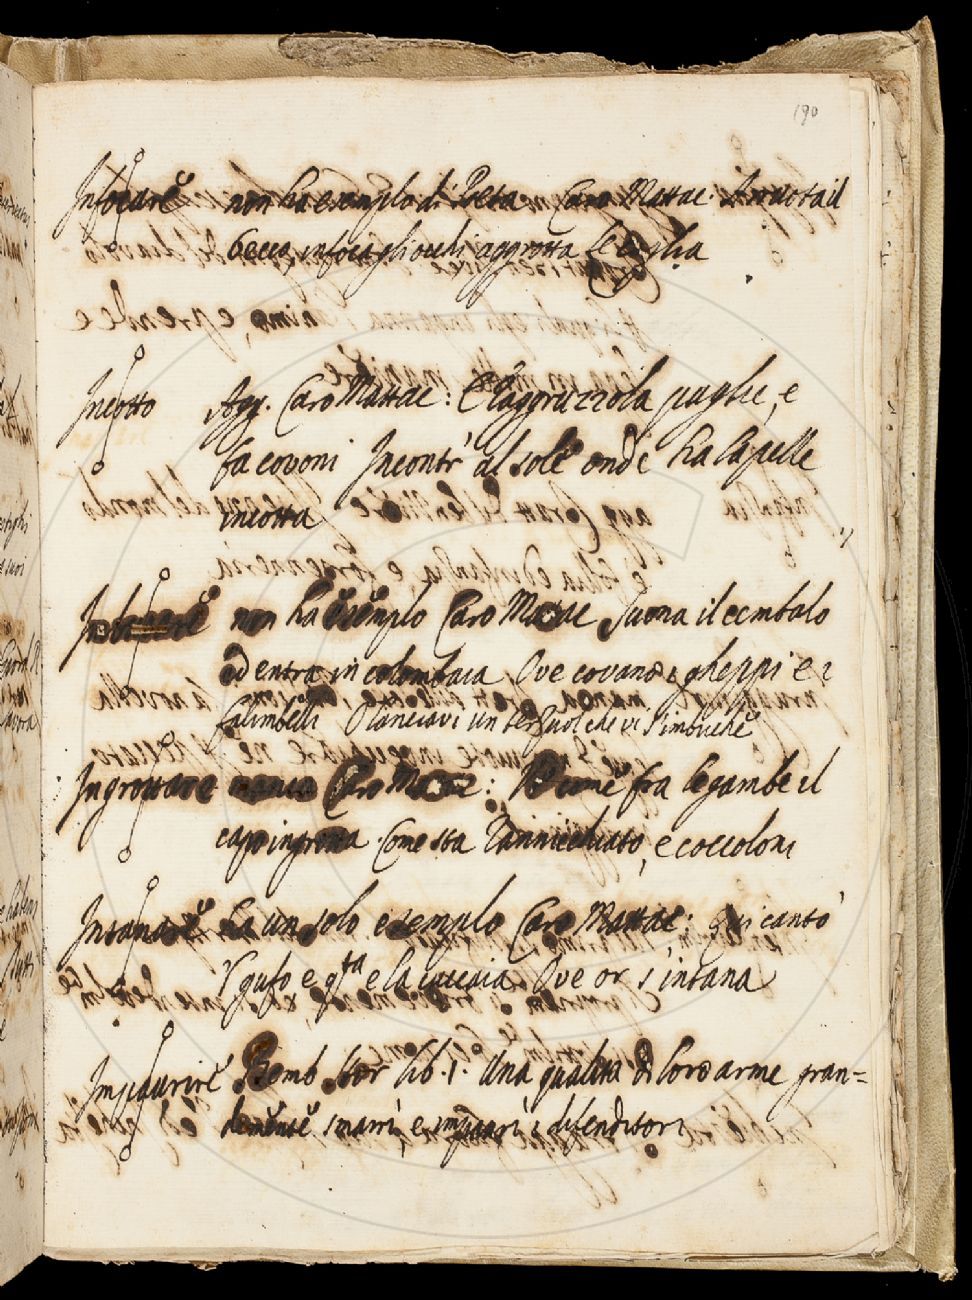 190
Infocare non ha esemplo di Poeta Caro Mattac: Arruota il
becco, infoca gli occhi, aggrotta le ciglia
Incotto Agg. Caro Mattac: E l'aggruzzola paglie, e
fa covoni Incontr' al sole onde ha la pelle
incotta
non ha esemplo Caro Mattac Suona il cembalo
ed entra in colombaia Ove covano i gheppi e i
falimbelli O lanciavi un che vi s'imbuche
Ingrottare manca Caro Mattac: fra le gambe il
capo ingrotta Come sta rannicchiato, e coccoloni
Intanare ha un solo esemplo Caro Mattac: Qui cantò
'l gufo e qta e la cuccaia Ove or s'intana
Impaurire Bemb. Stor lib. 1. Una qualità di loro arme gran=
demente smarrì, e impaurì i difenditori